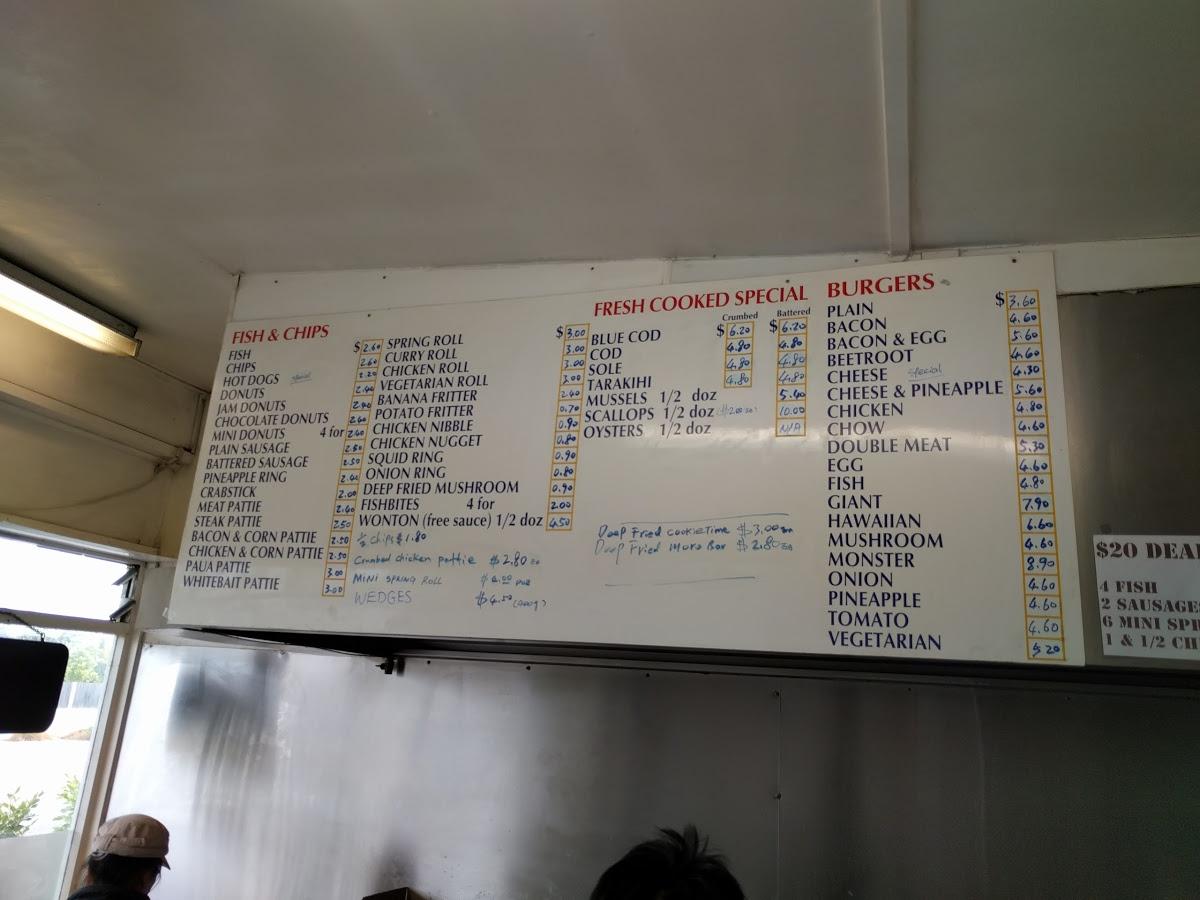 FISH & CHIPS
FISH $ 2.60
CHIPS 2.60
HOT DOGS special 2.20
DONUTS 2.40
JAM DONUTS
CHOCOLATE DONUTS 2.60
MINI DONUTS 4 for 2.60
PLAIN SAUSAGE 2.50
BATTERED SAUSAGE 2.50
PINEAPPLE RING 2.40
CRABSTICK 2.00
MEAT PATTIE 2.40
STEAK PATTIE 2.50
BACON & CORN PATTIE 2.50
CHICKEN & CORN PATTIE 2.50
PAUA PATTIE 3.00
WHITEBAIT PATTIE 3.00
SPRING ROLL $ 3.00
CURRY ROLL 3.00
CHICKEN ROLL 3.00
VEGETARIAN ROLL 3.00
BANANA FRITTER 2.40
POTATO FRITTER 0.70
CHICKEN NIBBLE 0.90
CHICKEN NUGGET 0.80
SQUID RING 0.90
ONION RING 0.80
DEEP FRIED MUSHROOM 0.90
FISHBITES 4 for 2.00
WONTON (free sauce) 1/2 doz 4.50
½ chips $1.80
Crumbed chicken pattie $2.80 ea
MINI SPRING ROLL
WEDGES $4.50
FRESH COOKED SPECIAL
Crumbed Battered
BLUE COD $ 6.20 $ 6.20
COD 4.80 4.80
SOLE 4.80 4.80
TARAKIHI 4.80 4.80
MUSSELS 1/2 doz 5.40
SCALLOPS 1/2 doz 10.00
OYSTERS 1/2 doz N/A
Deep Fried CookieTime $3.00 ea
Deep Fried Moro Bar $2.80 ea
BURGERS
PLAIN $ 3.60
BACON 4.60
BACON & EGG 5.60
BEETROOT 4.60
CHEESE special 4.30
CHEESE & PINEAPPLE 5.60
CHICKEN 4.80
CHOW 4.60
DOUBLE MEAT 5.30
EGG 4.60
FISH 4.80
GIANT 7.90
HAWAIIAN 6.60
MUSHROOM 4.60
MONSTER 8.90
ONION 4.60
PINEAPPLE 4.60
TOMATO 4.60
VEGETARIAN 5.20
$20 DEA
4 FISH
2 SAUSAGE
6 MINI SPR
1 & 1/2 CH